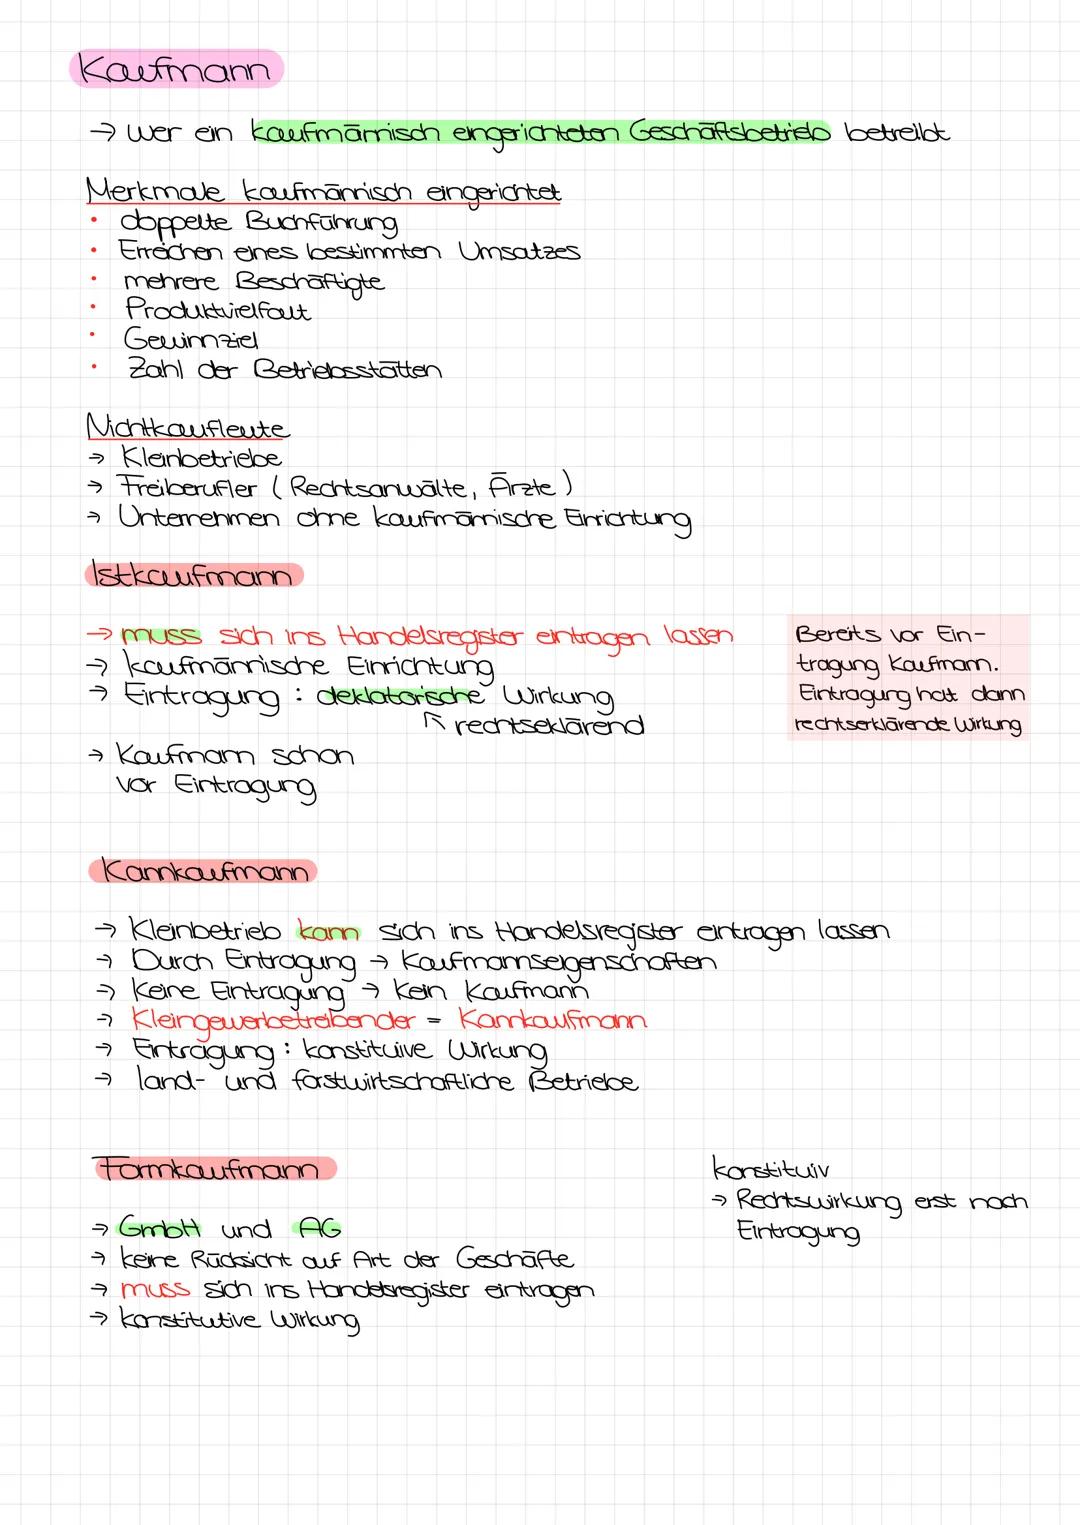 Kaufmann
→ wer ein kaufmännisch eingerichteten Geschäftsbetrieb betreibt
Merkmale kaufmännisch eingerichtet
• doppelte Buchführung
• Erreichen eines bestimmten Umsatzes
• mehrere Beschäftigte
• Produktvielfalt
• Gewinnziel
• Zahl der Betriebsstätten
Nichtkaufleute
→ Kleinbetriebe
→ Freiberufler (Rechtsanwälte, Ärzte)
→ Unternehmen ohne kaufmännische Einrichtung
Istkaufmann
→ muss sich ins Handelsregister eintragen lassen
→ kaufmännische Einrichtung
→ Eintragung: deklatorische Wirkung
↖ rechtseklärend
→ Kaufmann schon
vor Eintragung
Bereits vor Ein-
tragung Kaufmann.
Eintragung hat dann
rechtserklärende Wirkung
Kannkaufmann
→ Kleinbetrieb kann sich ins Handelsregister eintragen lassen
→ Durch Eintragung → Kaufmannseigenschaften
→ Keine Eintragung → Kein Kaufmann
→ Kleingewerbetreibender = Kannkaufmann
→ Eintragung: konstituive Wirkung
→ land- und forstwirtschaftliche Betriebe
Formkaufmann
→ GmbH und AG
→ keine Rücksicht auf Art der Geschäfte
→ muss sich ins Handelsregister eintragen
→ konstitutive Wirkung
konstituiv
→ Rechtswirkung erst nach
Eintragung